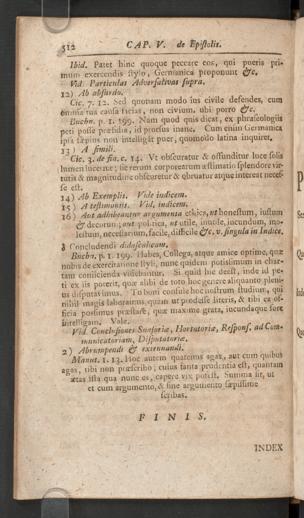 312 CAP. V. de Epistolis.
Ibid. Patet hinc quoque peccare eos, qui pueris pri-
mum exercendis stylo, Germanica proponunt &c.
Vid. Particulas Adversativas supra.
12) Ab absurdo.
Cic. 7. 12. Sed quonam modo ius civile defendes, cum
omnia tua causa facias, non civium. ubi porro &c.
Buchn. p. 1. 199. Nam quod quis dicat, ex phraseologiis
peti posse præsidia, id prorsus inane. Cum enim Germanica
ipsa sæpius non intelligat puer, quomodo latina inquiret,
13) A simili.
Cic. 3. de fin. c. 14. Ut obscuratur & offunditur luce solis
lumen lucernæ; sic rerum corporearum æstimatio splendore vir-
tutis & magnitudine obscuretur & obruatur atque intereat neces-
se est.
14) Ab Exemplis. Vide indicem.
15) A testimoniis. Vid. indicem.
16) Aut adhibeantur argumenta ethica, ut honestum, iustum
& decorum; aut politica, ut utile, inutile, iucundum, mo-
lestum, necessarium, facile, difficile &c. v. singula in Indice.
Concludendi
Buchn. p. 1. 199. Habes, Collega, atque amice optime, quæ
nobis de exercitatione styli, nunc quidem potissimum in char-
tam conjicienda videbantur. Si quid hic deest, inde id pe-
ti ex iis poterit, quæ alibi de toto hoc genere aliquanto pleni-
us disputavimus. Tu boni consule hoc nostrum studium, qui
nihil magis laboramus, quam ut prodesse literis, & tibi ea of-
ficia possimus præstare, quæ maxime grata, iucundaque fore
intelligam. Vale.
Vid. Conclusiones Suasoriæ, Hortatoriæ, Respons. ad Com-
municatoriam, Disputatoriæ.
2) Abrumpendi & extenuandi.
Manut. 1. 13. Hoc autem quatenus agas, aut cum quibus
agas, tibi non præscribo; cuius tanta prudentia est, quantam
ætas ista qua nunc es, capere vix potest. Summa sit, ut
et cum argumento, & sine argumento sæpissime
scribas.
FINIS.
INDEX